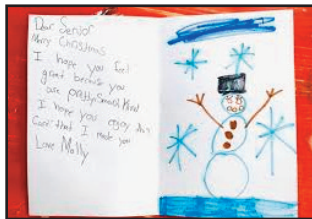 Dear Senior
Merry Christmas
I hope you feel
great because you
are pretty Smart Kind
I hope you enjoy this
Card that I made you
Love Molly